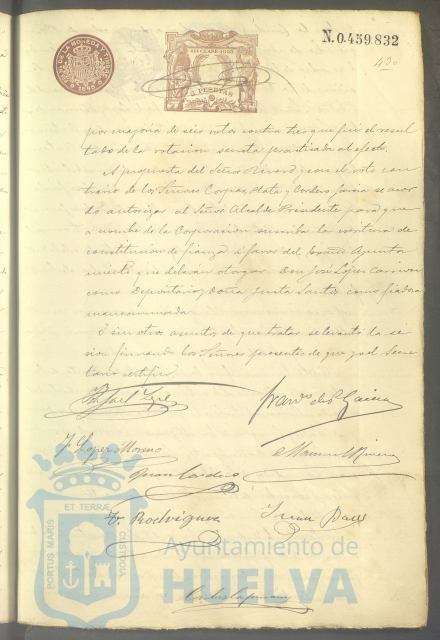 N.0.459.832
430
1895
3 PESETAS
por mayoria de seis votos contra tres que fué el resul
tado de la votacion secreta practicada al efecto.
A propuesta del Señor y con el voto con
trario de los Señores Mata y Cordero García se acor
dó autorizar al Señor Alcalde Presidente para que
a nombre de la Corporacion suscriba la escritura de
constitucion de fianza á favor del Ayunta
miento que deberán otorgar Don José López
como Depositario y Doña Justa Santos como fiadora
mancomunada.
I sin otros asuntos de que tratar se levantó la se
sion firmando los Señores presentes de que yo el Secre
tario certifico.
Rafael López
Franco de P. García
J. Lopez Moreno
Manuel Rivera
Juan Cordero
F. Rodriguez
Juan
PORTUS MARIS ET TERRÆ CUSTODIA
Ayuntamiento de
HUELVA